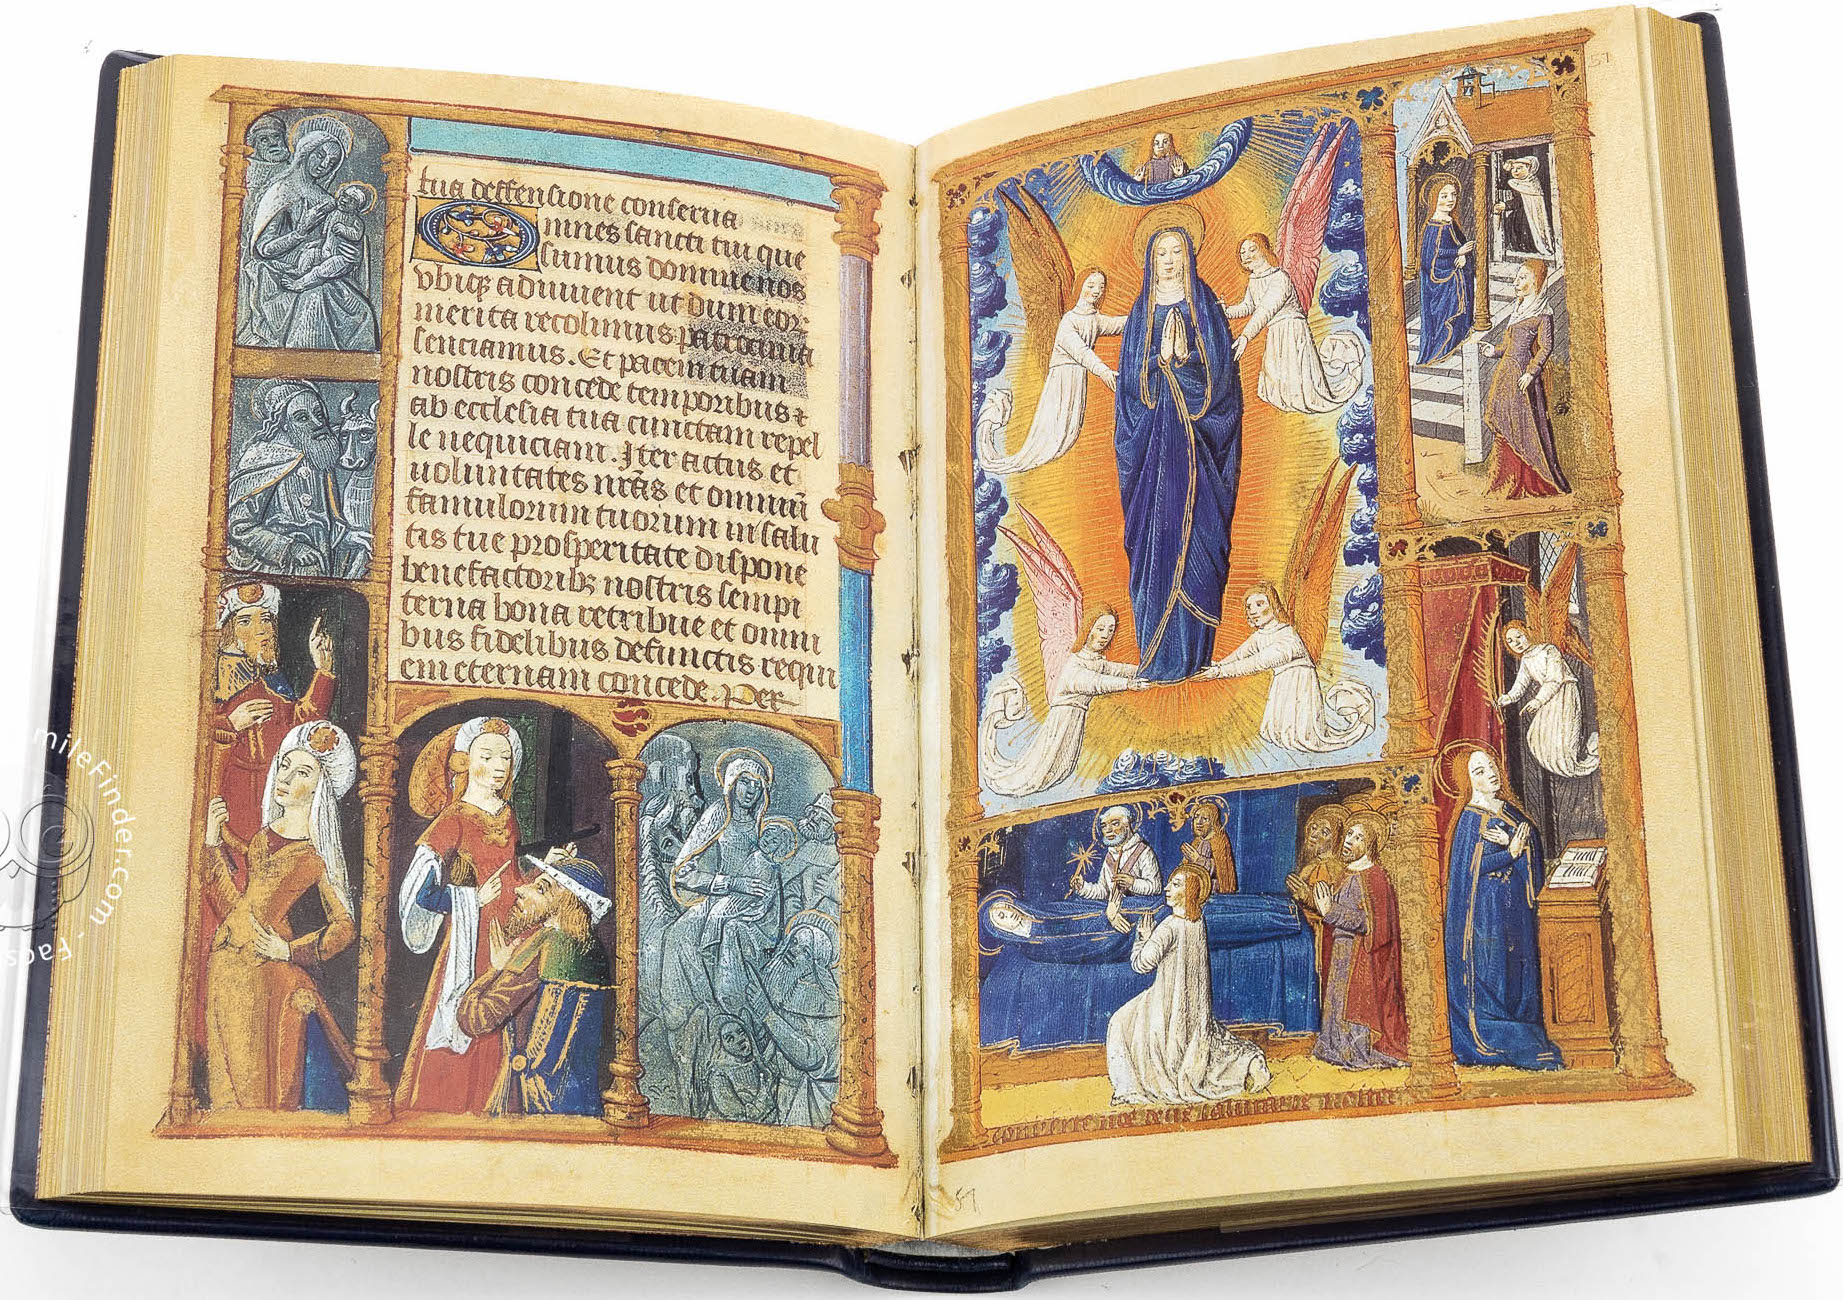 tua deffensione conserua
Omnes sancti tui que
sumus domine nos
vbiqz adiuuent ut dum eor
merita recolimus patrocinia
senciamus. Et pacem tuam
nostris concede temporibus &
ab ecclesia tua cunctam repel
le nequiciam. Iter actus et
uoluntates nr̃as et omniũ
famulorum tuorum in salu
tis tue prosperitate dispone
benefactoribz nostris sempi
terna bona retribue et omni
bus fidelibus defunctis requi
em eternam concede. Per
57
conuerte nos deus salutaris noster
57
mileFinder.com - Facs